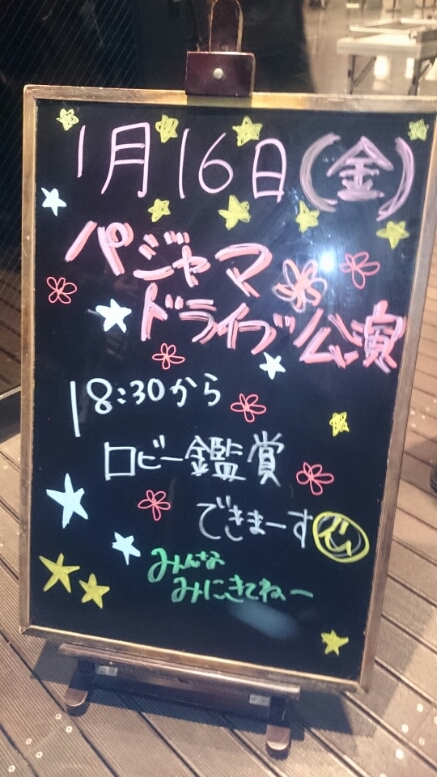 1月16日(金)
パジャマ
ドライブ公演
18:30から
ロビー鑑賞
できまーす
みんな
みにきてねー